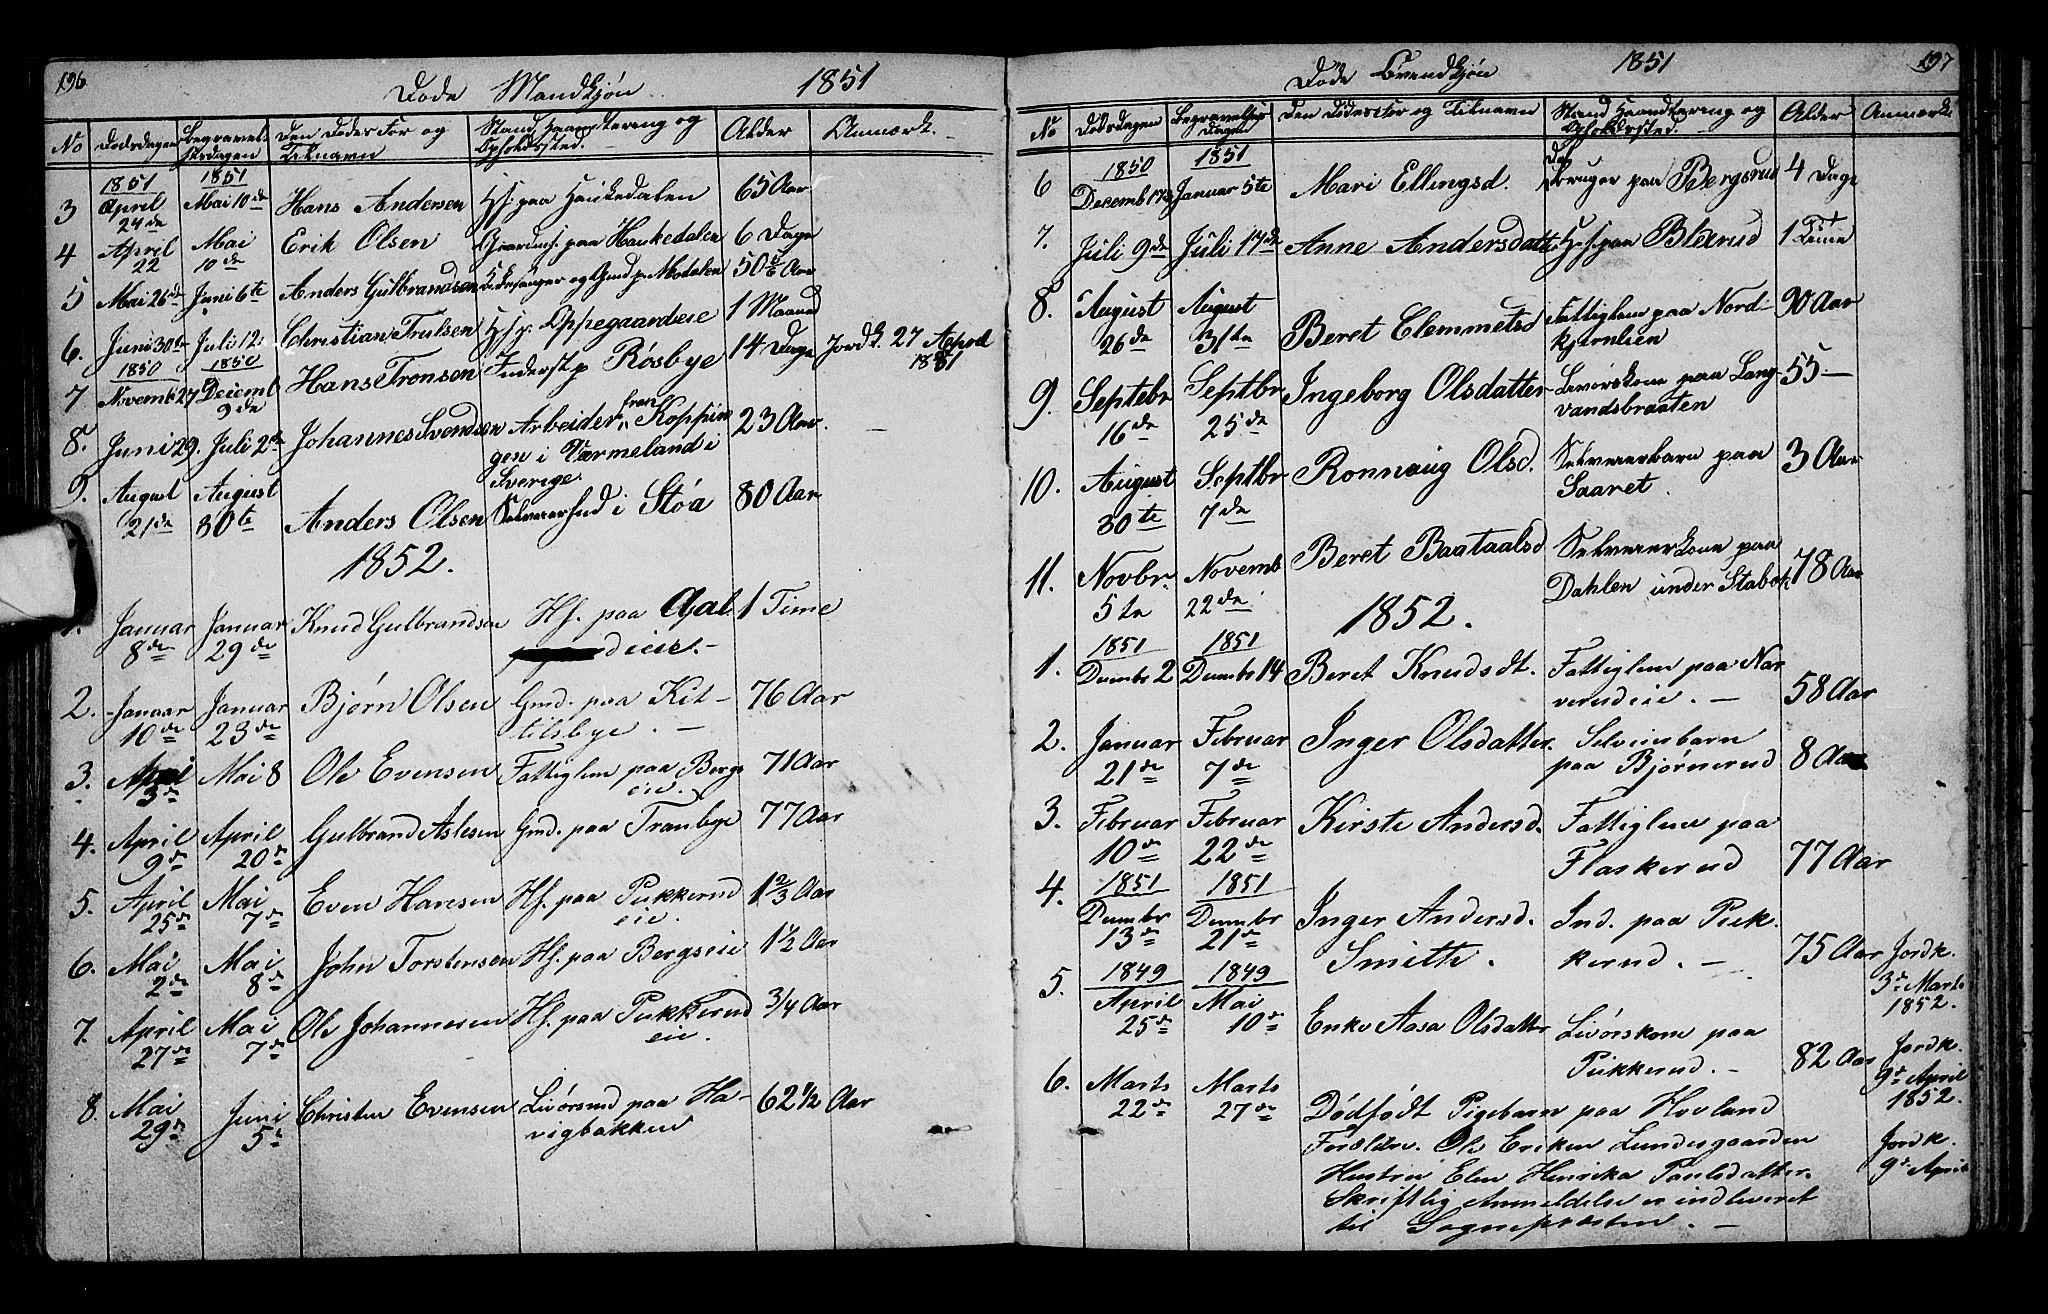 196
Døde Mandkjøn 1851
No Dødsdagen Begravelsesdagen Den Dødes For og Tilnavn Stand Haandtering og Opholdssted. Alder Anmærk.
3 1851 April 24de 1851 Mai 10de Hans Andersen Hf. paa Haukedalen 65 Aar
4 April 22 Mai 10de Erik Olsen Gaardmf. paa Haukedalen 6 Dage
5 Mai 26de Juni 6te Anders Gulbrandsen Kirkesanger og Gmd p. Modalen 50 Aar
6. Juni 30te Juli 12 Christian Trulsen Hf p. Oppegaardeie 1 Maaned
7 1850 Novemb 27 1850 Decemb 9de Hans Tronsen Inderst p Røsbye 14 Dage Jordk. 27 April 1851
8. Juni 29. Juli 2de Johannes Svendsen Arbeider fra Koppun
gen i Værmeland i
Sverige.
9. August 21de August 30te Anders Olsen Selveierfud i Støa 80 Aar
23 Aar.
1852.
1. Januar 8de Januar 29de Knud Gulbrandsen Hf. paa Aal
deiet. 1 Time
2. Januar 10de Januar 23de Bjørn Olsen Gmd. paa Kit-
tilsbye. 76 Aar
3. April 3de Mai 8 Ole Evensen Fattiglem paa Bergs
eie. 71 Aar
4. April 9de April 20de Gulbrand Aslesen Gmd. paa Tranbye 77 Aar
5. April 25de Mai 7de Even Hansen Hf. paa Pukkerud
eie. 1 2/3 Aar
6. Mai 2de Mai 8de John Torstensen Hf. paa Bergseie 1 1/2 Aar
7. April 27de Mai 7de Ole Johannesen Hf. paa Pukkerud
eie. 3/4 Aar
8. Mai 29de Juni 5te Christen Evensen Livørsmd paa Ha-
vigbakken 62 1/2 Aar
197
Døde Qvendkjøn 1851
No Dødsdagen Begravelses Dagen Den Dødes For og Tilnavn Stand Haandtering og Opholdssted. Alder Anmærk
6 1850 Decemb 17de 1851 Januar 5te Mari Ellingsd. bruger paa Bergsrud 4 Dage
7. Juli 9de Juli 17de Anne Andersdatt. Hf. paa Blærud 1 Time
8. August 26de August 31te Beret Clemmetsd Fattiglem paa Nord-
kjernlien 90 Aar
9. Septebr 16de Septbr 25de Ingeborg Olsdatter Livørskone paa Lang-
vandsbraaten 55
10. August 30te Septbr 7de Ronnaug Olsd. Selveierbarn paa
Saaret. 3 Aar
11. Novbr. 5te Novemb 22de Beret Baataalsd Selveierkone paa
Dahlen under Stabek 78 Aar
1852.
1. 1851 Decembr 2 1851 Decembr 14 Beret Knudsdt. Fattiglem paa Nor
verudeie. 58 Aar
2. Januar 21de Februar 7de Inger Olsdatter. Selveierbarn
paa Bjørnerud 8 Aar
3. Februar 10de Februar 22de Kirste Andersd. Fattiglem paa
Flaskerud 77 Aar
4. 1851 Decembr 13de 1851 Decembr 21de Inger Andersd.
Smith. Ind. paa Puk-
kerud. 75 Aar Jordk.
3de Marts
1852.
5. 1849 April 25de 1849 Mai 10de Enke Aasa Olsdatter Livørskone paa
Pukkerud. 82 Aar Jordk.
9de April
1852.
6. Marts 22de Marts 27de Dødfødt Pigebarn paa Hovland
Forældre. Ole Eriksen Lundesgaarden
Hustru Elen Henrika Poulsdatter.
Skriftlig Anmeldelse er indleveret
til Sognepræsten.
Jordk.
9de April